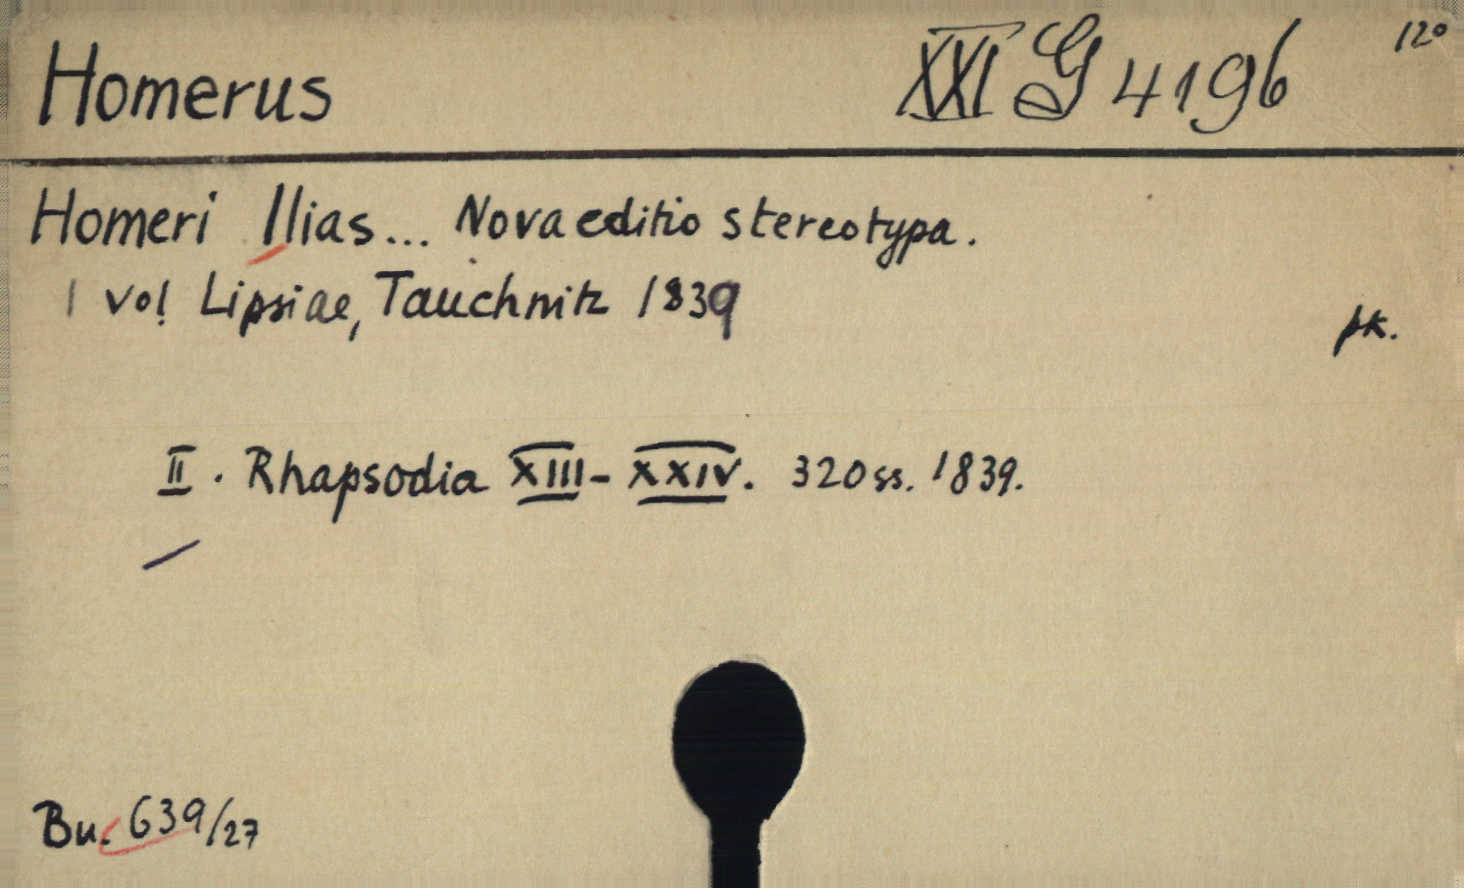 Homerus XXI G 4196 120
Homeri Ilias... Nova editio stereotypa.
1 vol Lipsiae, Tauchnitz 1839
pk.
II. Rhapsodia XIII-XXIV. 320 ss. 1839.
Bu. 639/27